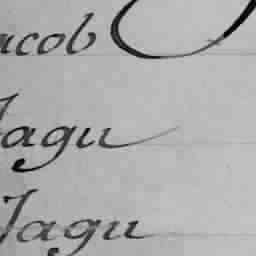 acob
Jagu
Jagu